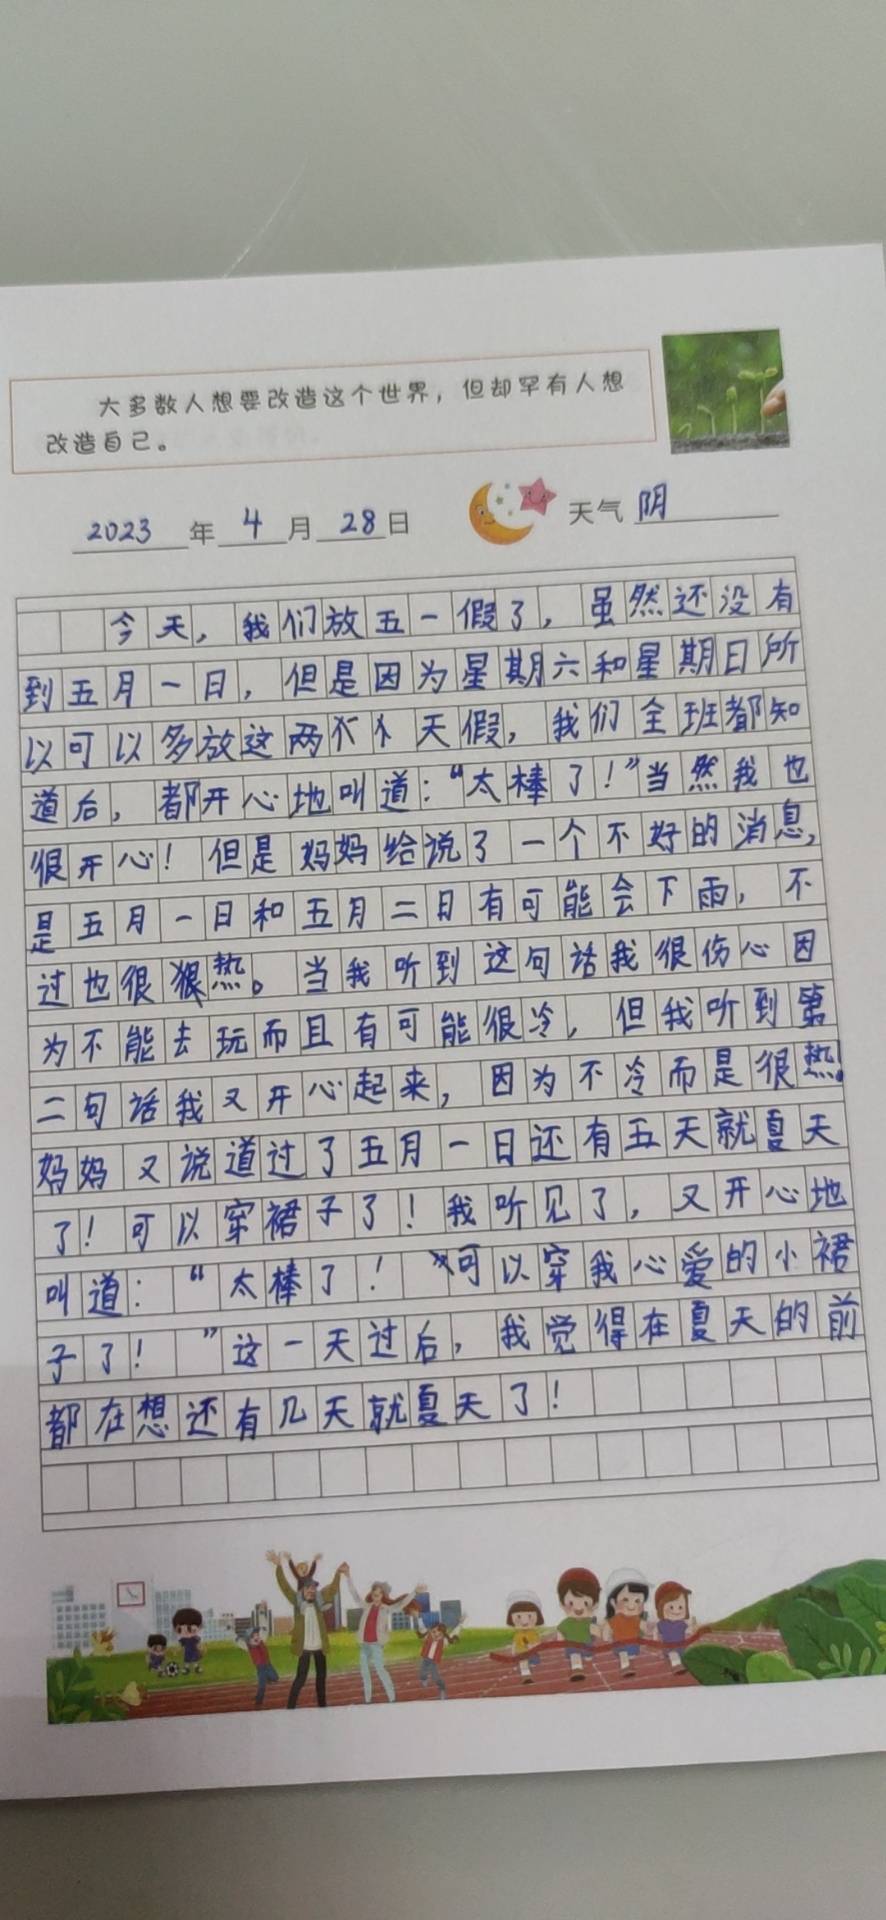 大多数人想要改造这个世界，但却罕有人想
改造自己。
2023年4月28日 天气 阴
今天，我们放五一假了，虽然还没有
到五月一日，但是因为星期六和星期日所
以可以多放这两天假，我们全班都知
道后，都开心地叫道：“太棒了！”当然我也
很开心！但是妈妈给说了一个不好的消息，
是五月一日和五月二日有可能会下雨，不
过也很狠热。当我听到这句话我很伤心因
为不能去玩而且有可能很冷，但我听到第
二句话我又开心起来，因为不冷而是很热！
妈妈又说道过了五月一日还有五天就夏天
了！可以穿裙子了！我听见了，又开心地
叫道：“太棒了！可以穿我心爱的小裙
子了！”这一天过后，我觉得在夏天的前
都在想还有几天就夏天了！